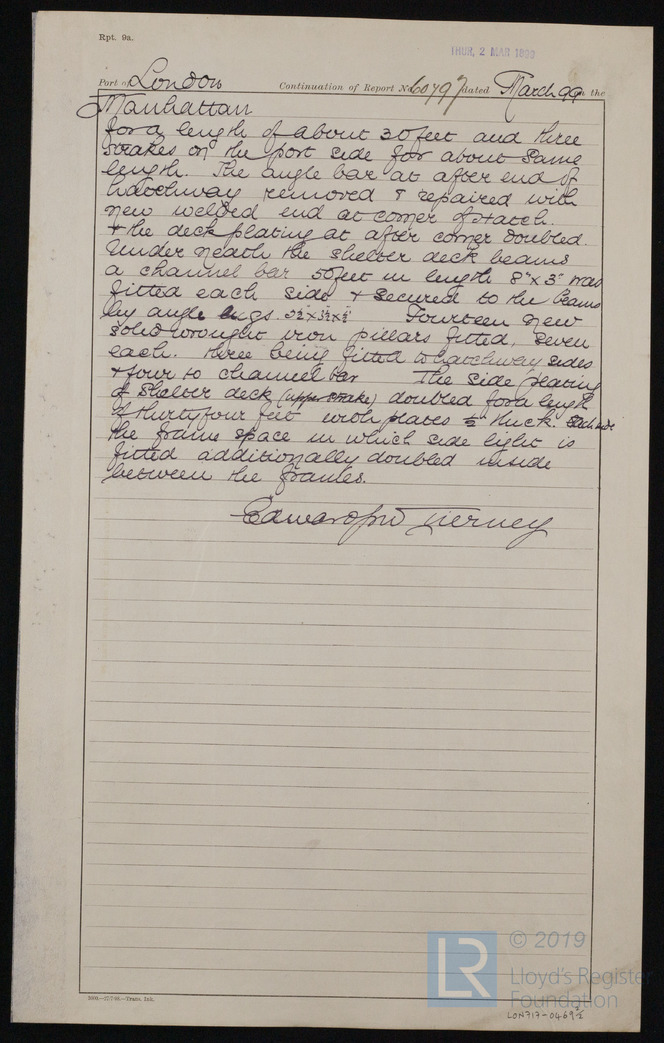 Rpt. 9a.
THUR. 2 MAR 1899
Port of London Continuation of Report No 60797 dated March 99 on the
Manhattan
for a length of about 30 feet and three
strakes on the port side for about same
length. The angle bar at after end of
hatchway removed & repaired with
new welded end at corner of hatch.
+ the deck plating at after corner doubled.
Under neath the shelter deck beams
a channel bar 50 feet in length 8" x 3" was
fitted each side + secured to the beams
by angle lugs. 3½ x 3½ x ½ Fourteen new
solid wrought iron pillars fitted, seven
each. three being fitted to hatchway sides
+ four to channel bar The side plating
of Shelter deck (upper strake) doubled for a length
of thirty four feet with plates ½ thick. Each side
the frame space in which side light is
fitted additionally doubled inside
between the frames.
Edward Tierney
© 2019
LR
Lloyd's Register
Foundation
LON717-0469